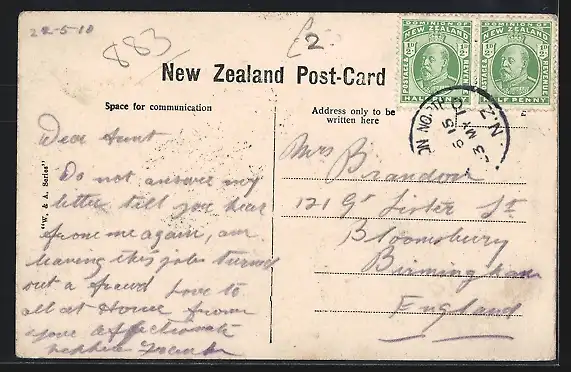 22-5-10
883
£2
New Zealand Post-Card
Space for communication
Address only to be
written here
"W. & A. Series"
DOMINION OF
NEW ZEALAND
POSTAGE & REVENUE
½D ½D
HALF PENNY
DOMINION OF
NEW ZEALAND
POSTAGE & REVENUE
½D ½D
HALF PENNY
N.Z.
Dear Aunt
Do not answer my
letter till you hear
from me again, am
leaving this job turned
out a fraud love to
all at Home from
your affectionate
nephew Frank
Mrs Brandon
121 Gt Lister St
Bloomsbury
Birmingham
England